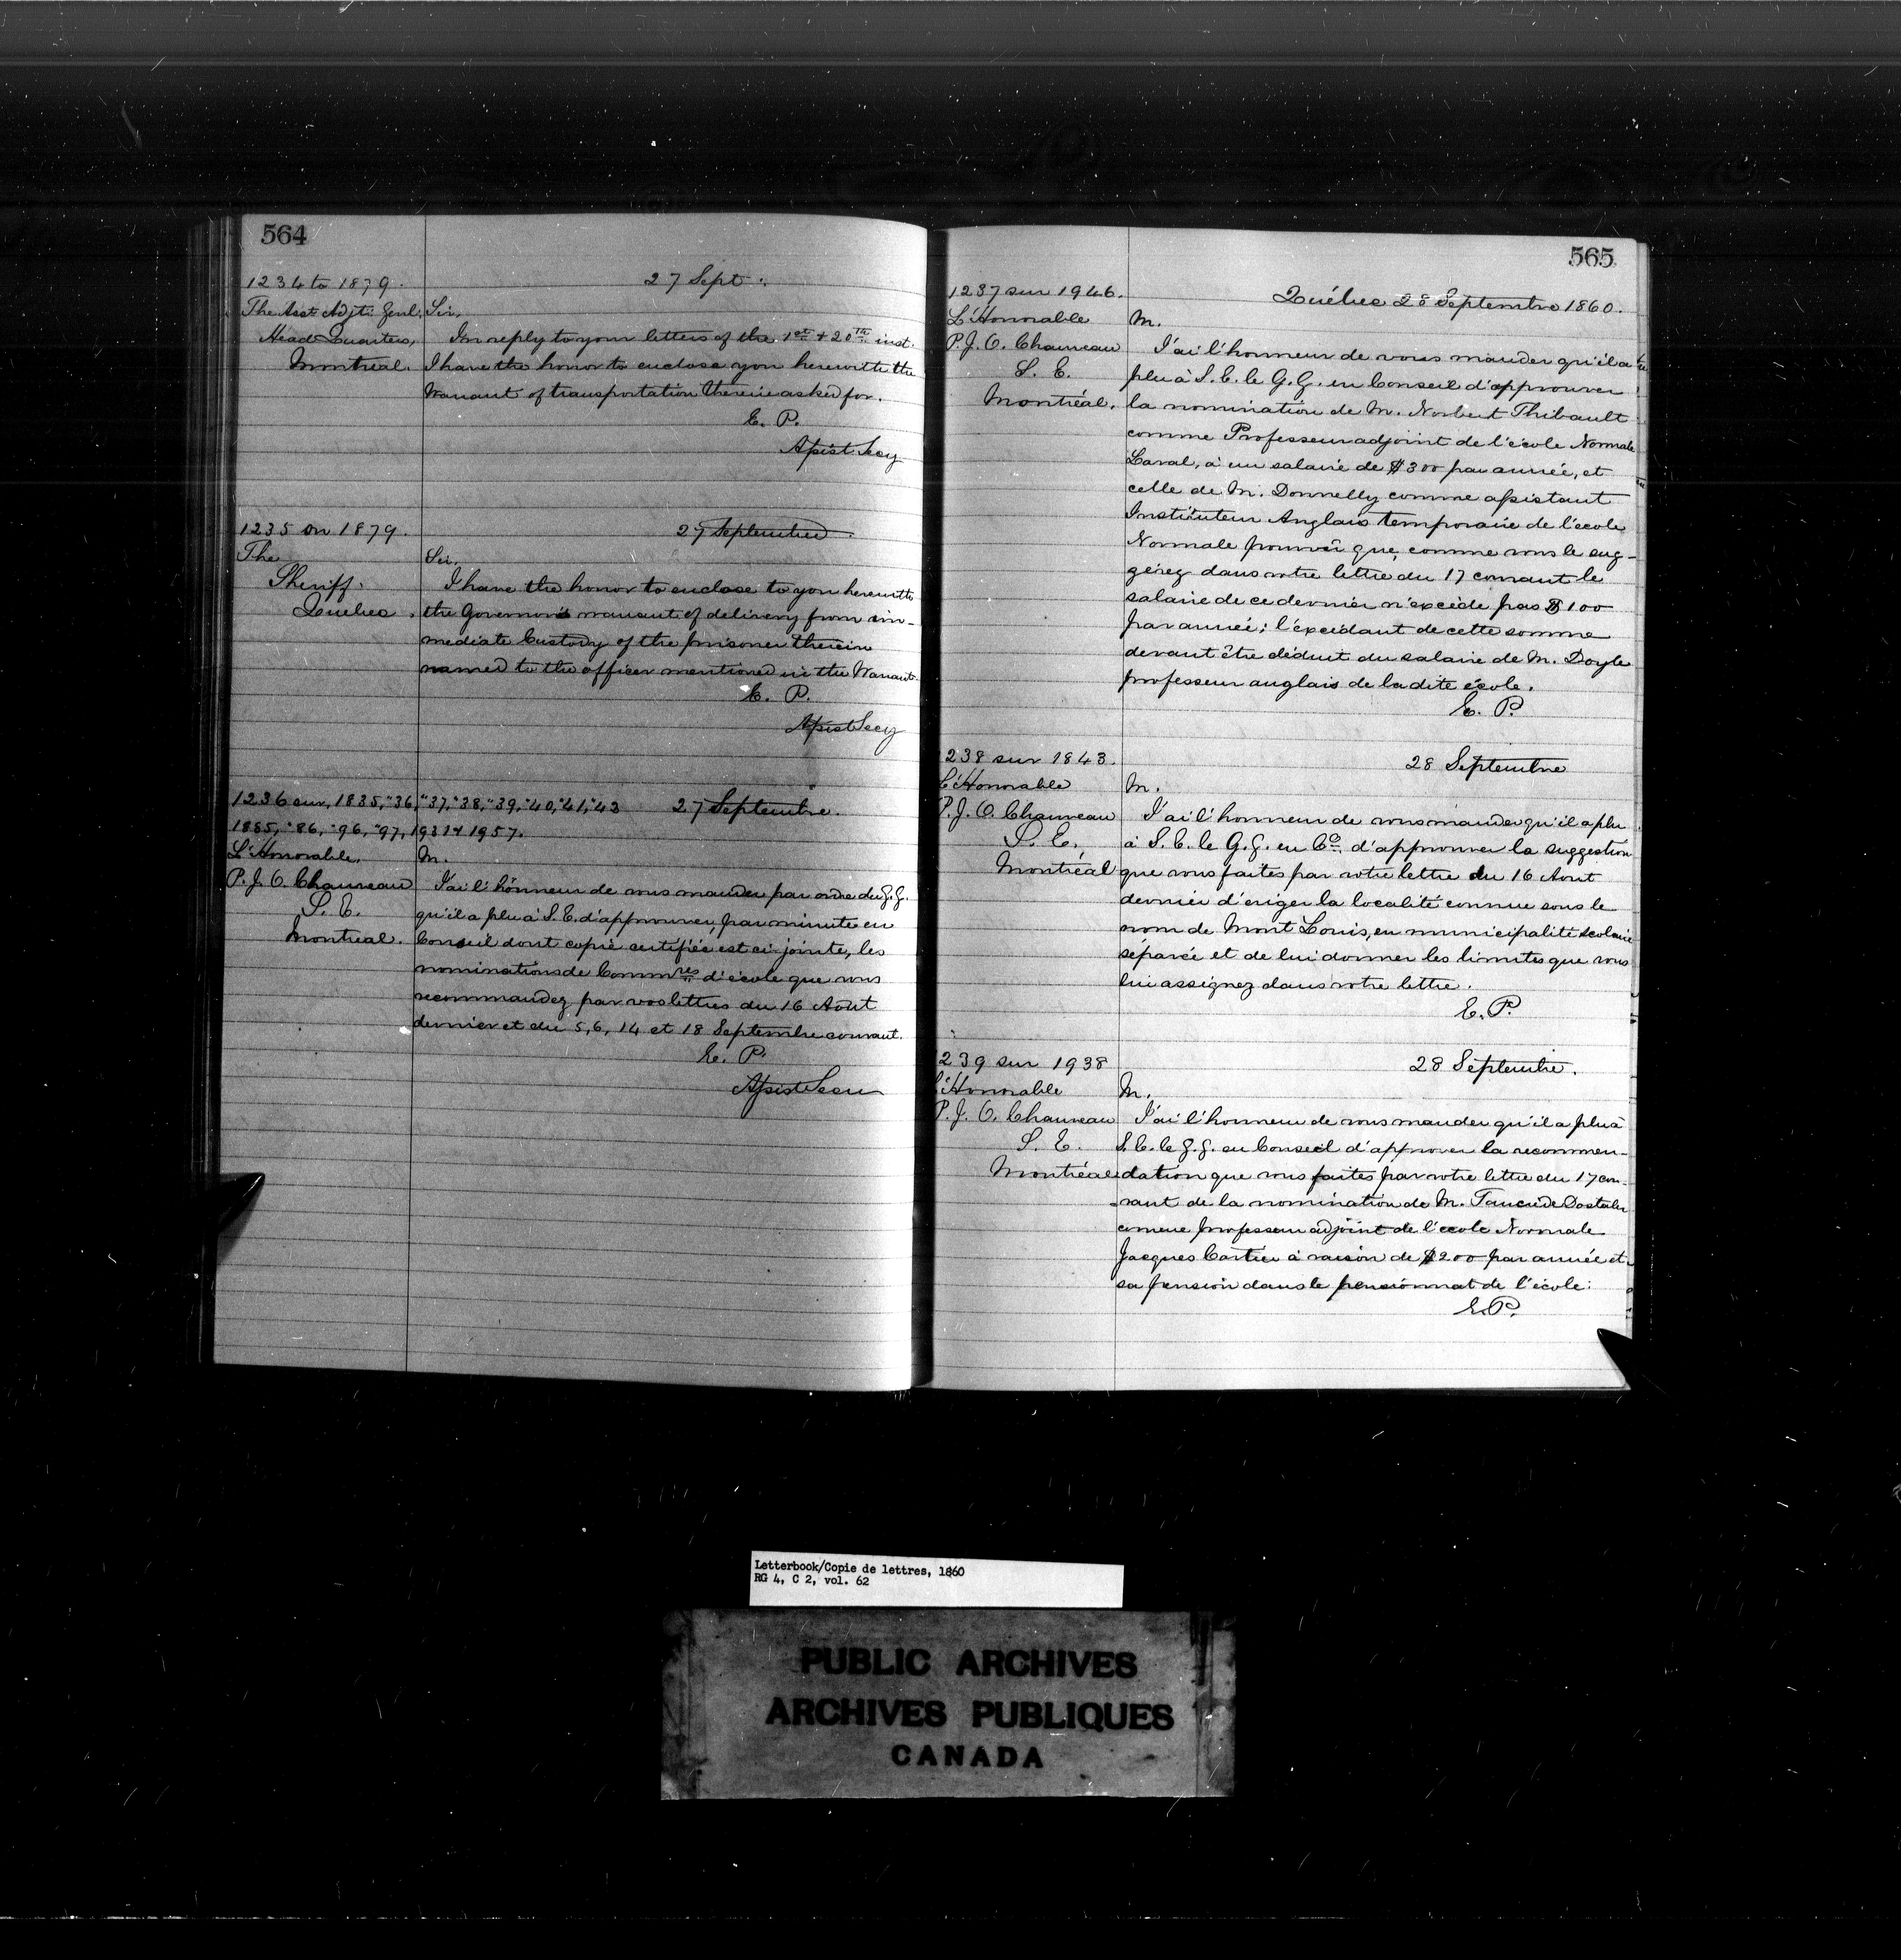 564
1234 to 1879.
27 Sept:
The Asst Adjt. Genl.
Head Quarters,
Montreal.
Sir,
In reply to your letters of the 1st & 20th inst.
I have the honor to enclose you herewith the
Warrant of transportation therein asked for.
E. P.
Assist Secy
1235 on 1879.
27 September.
The
Sheriff.
Quebec.
Sir,
I have the honor to enclose to you herewith
the Governor's warrant of delivery from im-
mediate Custody of the prisoner therein
named to the officer mentioned in the Warrant.
E. P.
Assist Secy
1236 sur, 1835, "36, "37, "38, "39, "40, "41, "43
27 Septembre.
1885, "86, "96, "97, 1931 & 1957.
L'Honorable,
P. J. O. Chauveau
S. E.
Montreal.
M.
J'ai l'honneur de vous mander par ordre du G. G.
qu'il a plu à S. E. d'approuver, par minute en
Conseil dont copie certifiée est ci-jointe, les
nominations de Commres d'école que vous
recommandez par vos lettres du 16 Août
dernier et du 5, 6, 14 et 18 Septembre courant.
E. P.
Assist Secu
565
1237 sur 1946.
Québec 28 Septembre 1860.
L'Honorable
P. J. O. Chauveau
S. E.
Montréal.
M.
J'ai l'honneur de vous mander qu'il a
plu à S. E. le G. G. en Conseil d'approuver
la nomination de M. Norbert Thibault
comme Professeur adjoint de l'école Normale
Laval, à un salaire de $300 par année, et
celle de M. Donnelly comme assistant
Instituteur Anglais temporaire de l'école
Normale pourvu que, comme vous le sug-
gérez dans votre lettre du 17 courant le
salaire de ce dernier n'excède pas $100
par année; l'excédant de cette somme
devant être déduit du salaire de M. Doyle
professeur anglais de la dite école.
E. P.
238 sur 1843.
28 Septembre
L'Honorable
P. J. O. Chauveau
S. E.,
Montréal
M.
J'ai l'honneur de vous mander qu'il a plu
à S. E. le G. G. en Co. d'approuver la suggestion
que vous faites par votre lettre du 16 Aout
dernier d'ériger la localité connue sous le
nom de Mont Louis, en municipalité scolaire
séparée et de lui donner les limites que vous
lui assignez dans votre lettre.
E. P.
239 sur 1938
28 Septembre.
L'Honorable
P. J. O. Chauveau
S. E.
Montréal
M.
J'ai l'honneur de vous mander qu'il a plu à
S. E. le G. G. en Conseil d'approuver la recommen-
dation que vous faites par votre lettre du 17 cou-
rant de la nomination de M. Tancrède Dostaler
comme professeur adjoint de l'école Normale
Jacques Cartier à raison de $200 par année et
sa pension dans le pensionnat de l'école.
E. P.
Letterbook/Copie de lettres, 1860
RG 4, C 2, vol. 62
PUBLIC ARCHIVES
ARCHIVES PUBLIQUES
CANADA